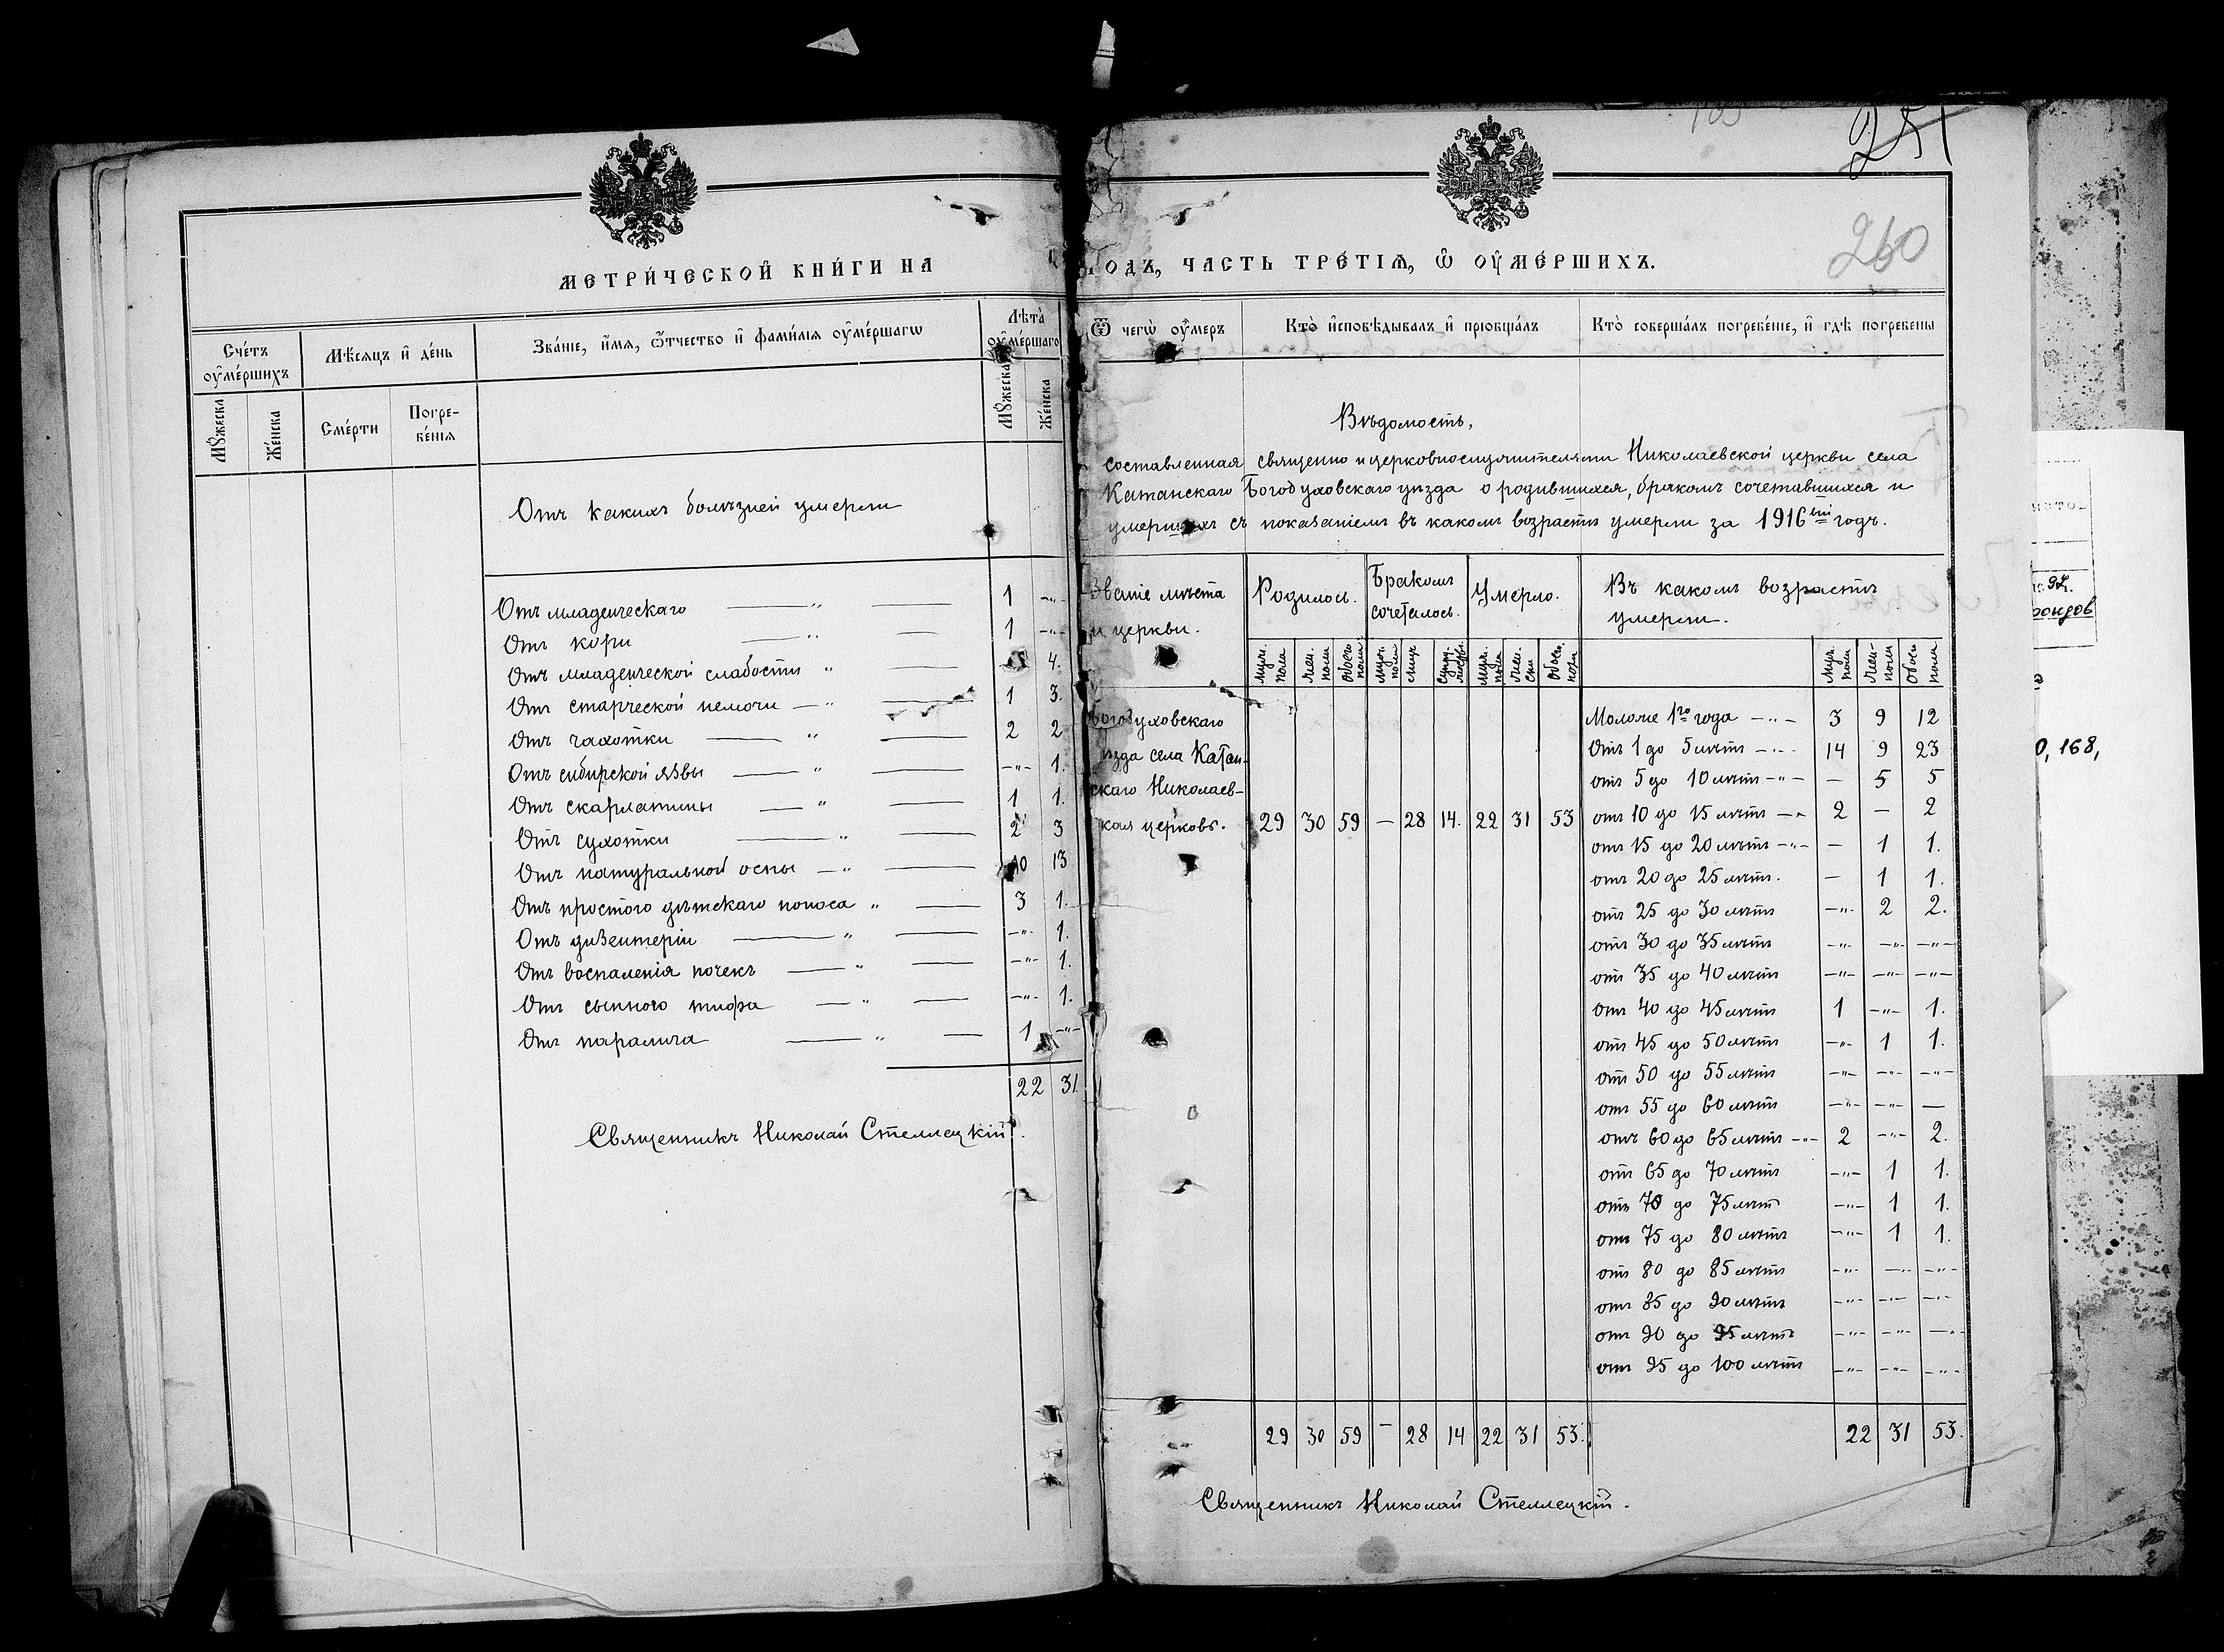 МЕТРИ́ЧЕСКОЙ КНИ́ГИ НА
Сче́тъ ᲂу҆ме́ршихъ
Мѣ́сяцъ и҆ де́нь
Зва́нїе, и҆́мѧ, ѻ҆́тчество и҆ фами́лїѧ ᲂу҆ме́ршагѡ
Лѣта̀ ᲂу҆ме́ршаго
Мꙋ́жеска
Же́нска
Сме́рти
Погре-
бе́нїѧ
Мꙋ́жеска
Же́нска
Отъ какихъ болѣзней умерли
Отъ младенческаго — „ — 1 -„-
Отъ кори — „ — 1 -„-
Отъ младенческой слабости „ 4.
Отъ старческой немочи — „ — 1 3.
Отъ чахотки — „ — 2 2
Отъ сибирской язвы — „ — -„- 1.
Отъ скарлатины — „ — 1 1.
Отъ сухотки — „ — 2 3
Отъ натуральной оспы — „ — 10 13
Отъ простого дѣтскаго поноса „ — 3 1.
Отъ дизентеріи — „ — -„- 1.
Отъ воспаленія почекъ — „ — -„- 1.
Отъ сыпного тифа — „ — -„- 1.
Отъ паралича — „ — 1 -„-
22 31
Священникъ Николай Стеллецкій.
251
260
ГОДЪ, ЧАСТЬ ТРЕ́ТЇѦ, Ѡ҆ ОУ҆МЕ́РШИХЪ.
Ѿ чегѡ̀ ᲂу҆́меръ
Кто̀ и҆сповѣ́дывалъ и҆ прїобща́лъ
Кто̀ соверша́лъ погребе́нїе, и҆ гдѣ̀ погребены
Вѣдомость,
составленная священно и церковнослужителями Николаевской церкви села
Катанскаго Богодуховскаго уѣзда о родившихся, бракомъ сочетавшихся и
умершихъ съ показаніемъ въ какомъ возрастѣ умерли за 1916ый годъ.
Званіе мѣста
и церкви.
Родилось.
Бракомъ
сочеталось.
Умерло.
Въ какомъ возрастѣ
умерли.
муж. пола
жен. пола
обоего пола
муж. пола
муж. пола
жен.
обоего пола
муж. пола
жен. пола
обоего пола
Богодуховскаго
уѣзда села Катан-
скаго Николаев-
кая церковь. 29 30 59 — 28 14. 22 31 53
Моложе 1го года -„- 3 9 12
Отъ 1 до 5 лѣтъ -„- 14 9 23
отъ 5 до 10 лѣтъ -„- — 5 5
отъ 10 до 15 лѣтъ -„ 2 — 2
отъ 15 до 20 лѣтъ -„- — 1 1.
отъ 20 до 25 лѣтъ. — 1 1.
отъ 25 до 30 лѣтъ -„- 2 2.
отъ 30 до 35 лѣтъ -„- -„- -„-
отъ 35 до 40 лѣтъ -„- -„- -„-
отъ 40 до 45 лѣтъ 1 -„- 1.
отъ 45 до 50 лѣтъ -„- 1 1.
отъ 50 до 55 лѣтъ -„- -„- -„-
отъ 55 до 60 лѣтъ -„- -„- —
отъ 60 до 65 лѣтъ -„- 2 -„- 2.
отъ 65 до 70 лѣтъ -„- 1 1.
отъ 70 до 75 лѣтъ -„- 1 1.
отъ 75 до 80 лѣтъ -„- 1 1.
отъ 80 до 85 лѣтъ -„- -„- -„-
отъ 85 до 90 лѣтъ -„- -„- -„-
отъ 90 до 95 лѣтъ -„- -„- -„-
отъ 95 до 100 лѣтъ -„- -„- -„-
29 30 59 — 28 14 22 31 53.
22 31 53.
Священникъ Николай Стеллецкій.
0, 168,